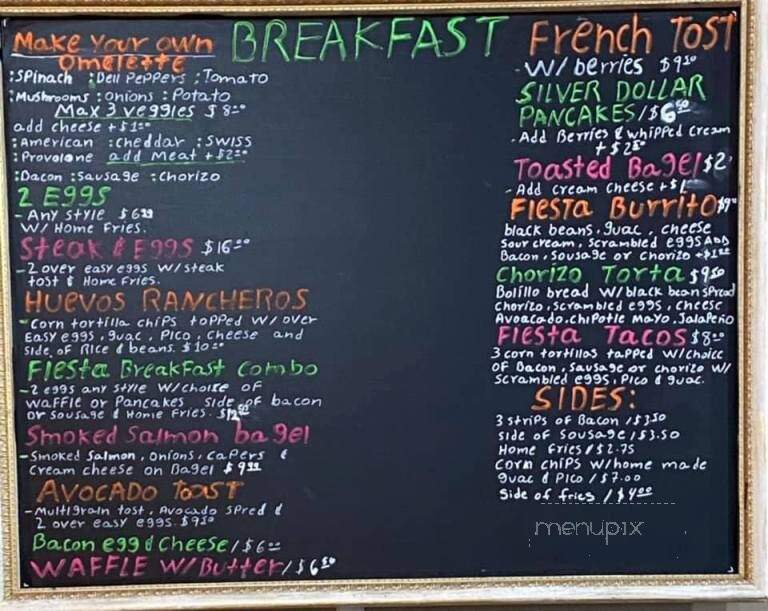 BREAKFAST
Make your own
Omelette
:Spinach :Bell Peppers :Tomato
:Mushrooms :onions :Potato
Max 3 veggies $8.00
add cheese +$1.00
:American :cheddar :SWISS
:Provolone add Meat +$2.00
:Bacon :Sausage :Chorizo
2 Eggs
- Any style $6
W/ Home Fries.
Steak & Eggs $16.00
- 2 over easy eggs w/steak
tost & Home Fries.
HUEVOS RANCHEROS
- Corn tortilla chips topped w/ over
Easy eggs, guac, Pico, cheese and
side of Rice & beans. $10.00
Fiesta BreakFast Combo
- 2 eggs any style w/choise of
waffle or Pancakes side of bacon
or sousage & Home Fries. $12
Smoked Salmon bagel
- Smoked Salmon, onions, capers &
cream cheese on Bagel $9
AVOCADO TOAST
- Multigrain tost, Avocado spred &
2 over easy eggs. $9.50
Bacon egg & Cheese/$6.00
WAFFLE W/ Butter/$6.50
French Tost
- W/ berries $9.50
SILVER DOLLAR
PANCAKES/$6.50
- Add Berries & whipped cream
+ $2.50
Toasted Bagel $2
- Add cream cheese +$1
Fiesta Burrito $9
black beans, guac, cheese
sour cream, scrambled eggs AND
Bacon, sousage or chorizo +$1.00
Chorizo Torta $9.50
Bolillo bread w/black bean spread
chorizo, scrambled eggs, cheese
Avoacado chipotle mayo, Jalapeño
Fiesta Tacos $8.00
3 corn tortillas tapped w/choice
of Bacon, sausage or chorizo w/
scrambled eggs, Pico & guac.
SIDES:
3 strips of Bacon /$3.50
side of sousage /$3.50
Home fries /$2.75
Corn chips w/home made
guac & Pico /$7.00
side of fries /$4.00
menupix